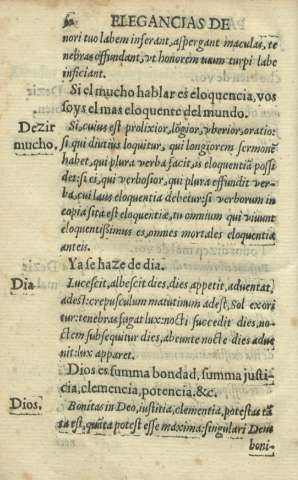 6 ELEGANCIAS DE
nori tuo labem inferant, aspergant maculas, te
nebras offundant, vt honorem tuum turpi labe
inficiant.
Si el mucho hablar es eloquencia, vos
soys el mas eloquente del mundo.
Dezir mucho,
Si, cuius est prolixior, lõgior, vberior, oratio:
si qui diutius loquitur, qui longiorem sermonē
habet, qui plura verba facit, is eloquentiã possi
det: si ei, qui verbosior, qui plura effundit ver-
ba, cui laus eloquentia debetur: si verborum in
copia sita est eloquentia, tu omnium qui viuunt
eloquentissimus es, omnes mortales eloquentia
anteis.
Ya se haze de dia.
Dia
Lucescit, albescit dies, dies appetit, aduentat,
adest: crepusculum matutinum adest, Sol exori
tur: tenebras fugat lux: nocti succedit dies, no-
ctem subsequitur dies, abeunte nocte dies adue
nit: lux apparet.
Dios es summa bondad, summa justi-
cia, clemencia, potencia. &c.
Dios.
Bonitas in Deo, iustitia, clementia, potestas tã
ta est, quãta potest esse maxima: singulari Deus
boni-